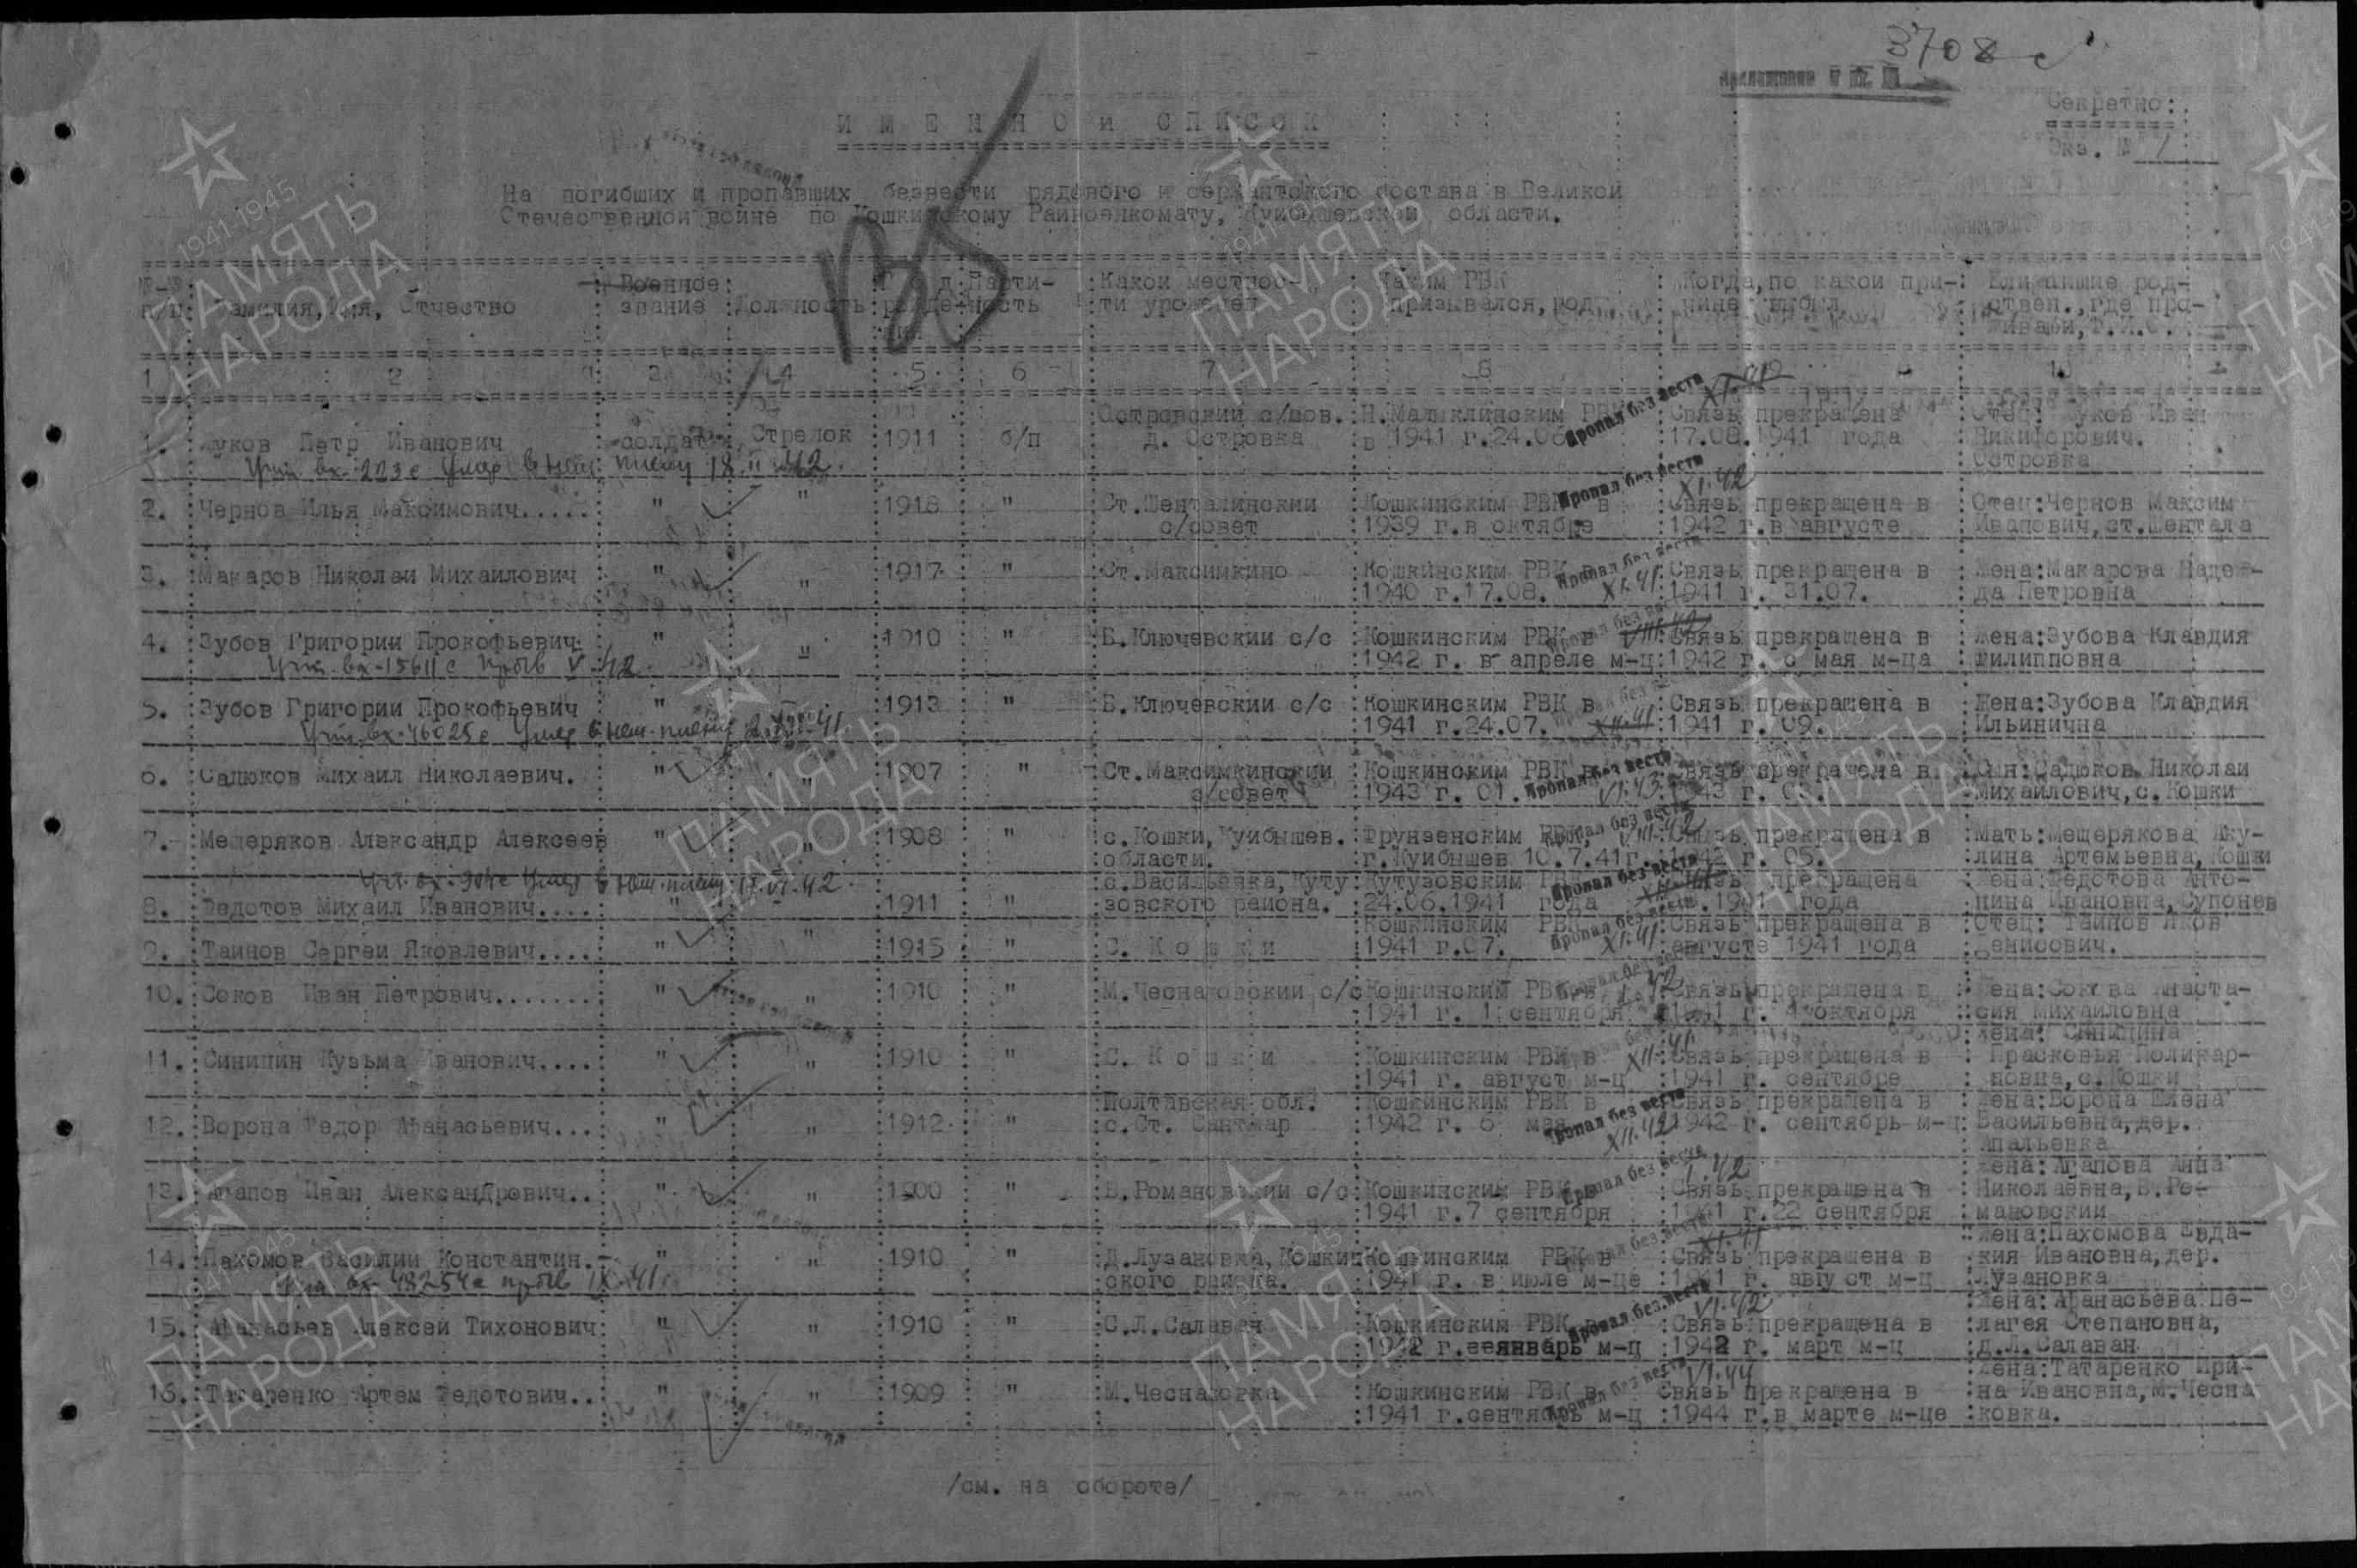 3708с
Приложение
Секретно:
Экз. № 1
ИМЕННОЙ СПИСОК
На погибших и пропавших безвести рядового и сержантского состава в Великой
Отечественной войне по Кошкинскому Райвоенкомату, Куйбышевской области.
№-№ Военное: Парти- Какой местнос- Каким РВК Когда, по какой при- Ближайшие род-
п/п Фамилия, Имя, Отчество звание Должность рожде- ность ти уроженец призывался, род чине выбыл ствен., где про-
живали, Ф.И.О.
1 2 3 4 5 6 7 8 9 10
Пропал без вести
Островский с/сов. Н.Малыклинским РВК Связь прекращена Отец: Жуков Иван
1. Жуков Петр Иванович солдат Стрелок 1911 б/п д. Островка в 1941 г.24.06 17.08.1941 года Никифорович.
вх-223с умер в нем. плену 18.II.42. Островка
Пропал без вести XI.42
2. Чернов Илья Максимович..... " " 1918 " Ст.Шенталинский Кошкинским РВК в Связь прекращена в Отец:Чернов Максим
с/совет 1939 г.в октябре 1942 г.в августе Иванович,ст.Шентала
Пропал без вести XI.41
3. Макаров Николай Михайлович " " 1917 " Ст.Максимкино Кошкинским РВК в Связь прекращена в Жена:Макарова Надеж-
1940 г.17.08. 1941 г. 31.07. да Петровна
Пропал без вести VIII.42
4. Зубов Григории Прокофьевич " " 1910 " Б.Ключевский с/с Кошкинским РВК в Связь прекращена в Жена:Зубова Клавдия
вх-15611с V.42. 1942 г. в апреле м-ц 1942 г. с мая м-ца Филипповна
5. Зубов Григории Прокофьевич " 1913 " Б.Ключевский с/с Кошкинским РВК в Связь прекращена в Жена:Зубова Клавдия
вх-46025с умер в нем. плену 41 1941 г.24.07. XII.41 1941 г. 09. Ильинична
6. Садюков Михаил Николаевич. " " 1907 " Ст.Максимкинский Кошкинским РВК Пропал без вести Связь прекращена в Сын:Садюков Николай
с/совет 1943 г. 01. VI.43 1943 г. 03. Михайлович,с.Кошки
Пропал без вести VIII.42
7. Мещеряков Александр Алексеев " " 1908 " с.Кошки,Куйбышев. Фрунзенским РВК, Связь прекращена в Мать:Мещерякова Аку-
области. г.Куйбышев 10.7.41г. 1942 г. 05. лина Артемьевна,Кошки
вх-904с умер в нем. плену 17.VI.42. с.Васильевка,Куту Кутузовским РВК Пропал без вести Связь прекращена Жена:Федотова Анто-
8. Федотов Михаил Иванович.... " 1911 " зовского района. 24.06.1941 года 1941 года нина Ивановна,Супонев
Кошкинским РВК Пропал без вести Связь прекращена в Отец: Таинов Яков
9. Таинов Сергей Яковлевич.... " " 1915 " С. К о ш к и 1941 г.07. XI.41 августе 1941 года Денисович.
10. Соков Иван Петрович....... " " 1910 " М.Чеснаковский с/с Кошкинским РВК в Связь прекращена в Жена:Сокова Анаста-
1941 г. 1 сентября 1941 г. 4 октября сия Михайловна
Жена: Синицина
11. Синицин Кузьма Иванович.... " " 1910 " С. К о ш к и Кошкинским РВК в XII.41 Связь прекращена в Прасковья Поликар-
1941 г. август м-ц 1941 г. сентябре повна,с.Кошки
Полтавская обл. Кошкинским РВК в Связь прекращена в Жена:Ворона Елена
12. Ворона Федор Афанасьевич... " " 1912 " с.Ст. Санжар 1942 г. 6 мая Пропал без вести XII.42 1942 г. сентябрь м-ц Васильевна,дер.
Апальевка
Пропал без вести I.42 Жена:Агапова Анна
13. Агапов Иван Александрович.. " " 1900 " Б.Романовский с/с Кошкинским РВК в Связь прекращена в Николаевна,Б.Ро-
1941 г.7 сентября 1941 г.22 сентября мановский
XI.41 Жена:Пахомова Евда-
14. Пахомов Василий Константин.- " " 1910 " Д.Лузановка,Кошкин Кошкинским РВК в Связь прекращена в кия Ивановна,дер.
вх-48254с IX.41г. ского района. 1941 г. в июле м-це 1941 г. август м-ц Лузановка
Пропал без вести VI.42 Жена:Афанасьева Пе-
15. Афанасьев Алексей Тихонович " " 1910 " С.Л.Салаван Кошкинским РВК в Связь прекращена в лагея Степановна,
1942 г. январь м-ц 1942 г. март м-ц д.Л.Салаван
Пропал без вести VI.44 Жена:Татаренко Ири-
16. Татаренко Артем Федотович.. " " 1909 " М.Чеснаковка Кошкинским РВК в Связь прекращена в на Ивановна,М.Чесна
1941 г.сентябрь м-ц 1944 г.в марте м-це ковка.
/см. на обороте/
1941-1945
ПАМЯТЬ
НАРОДА